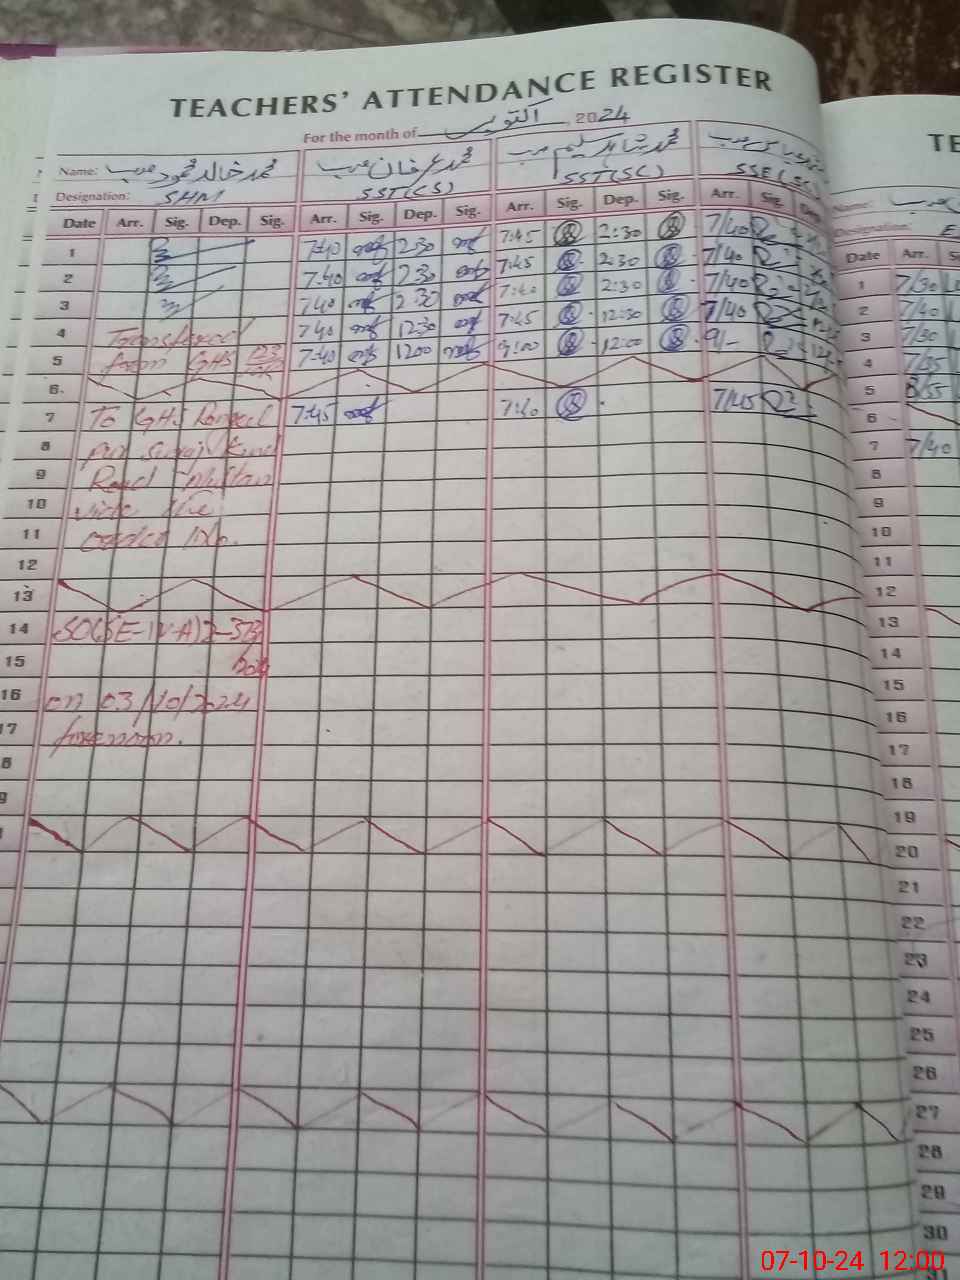 TEACHERS' ATTENDANCE REGISTER
For the month of اکتوبر, 2024
Name: محمد خالد محمود صاحب محمد عرفان صاحب محمد شاہد سلیم صاحب
Designation: SHM SST(CS) SST(SC) SSE(SC)
Date Arr. Sig. Dep. Sig. Arr. Sig. Dep. Sig. Arr. Sig. Dep. Sig. Arr. Sig. Dep.
1 7:40 2:30 7:45 2:30 7/40
2 7:40 2:30 7:45 2:30 7/40
3 7:40 2:30 7:40 2:30 7/40
4 Transfered 7:40 12:30 7:45 12:30 7/40
5 from GHS 7:40 12:00 9:00 12:00 9/-
6
7 To GHS 7:45 7:40 7/45
8 pur Suraj Kund
9 Road Multan
10 vide the
11 order No.
12
13
14 SO(SE-IV-A)2-373
15
16 on 03/10/2024
17 forenoon.
8
9
Name:
Designation:
Date Arr.
1 7/30
2 7/40
3 7/30
4 7/35
5 8/55
6
7 7/40
8
9
10
11
12
13
14
15
16
17
18
19
20
21
22
23
24
25
26
27
28
29
30
31
07-10-24 12:00